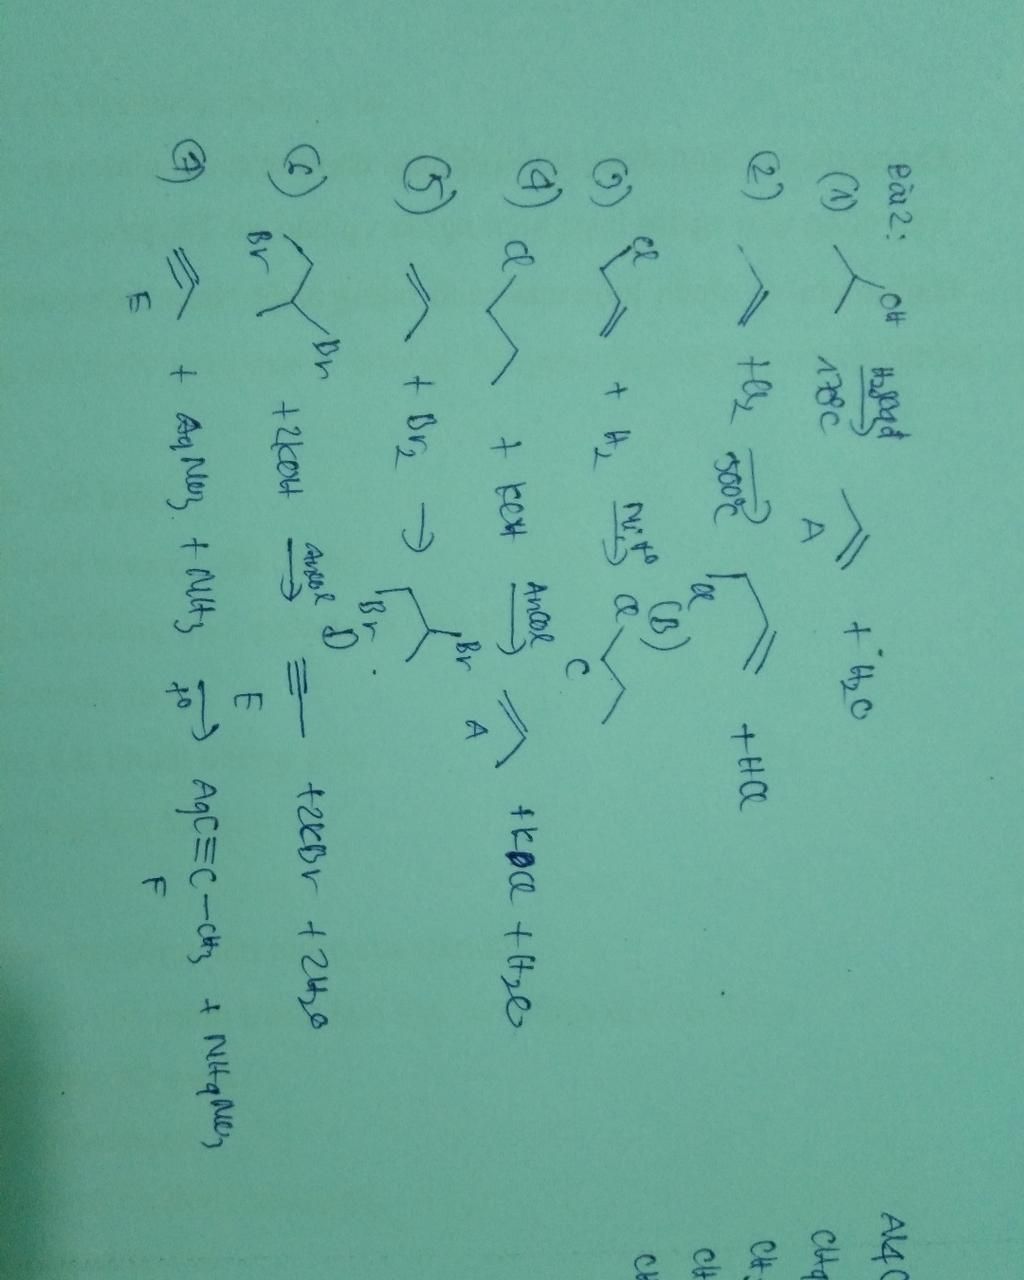 Bài 2:
(1) OH H₂SO₄đ 170°C → A + H₂O
(2) + Cl₂ → 500°C Cl + HCl (B)
(3) Cl + H₂ Ni, t° → Cl C
(4) Cl + KOH Ancol → A + KCl + H₂O
(5) + Br₂ → Br Br D
(6) Br Br + 2KOH Ancol → E + 2KBr + 2H₂O
(7) E + AgNO₃ + NH₃ → t° AgC≡C-CH₃ F + NH₄NO₃
CH₄
CH
CH